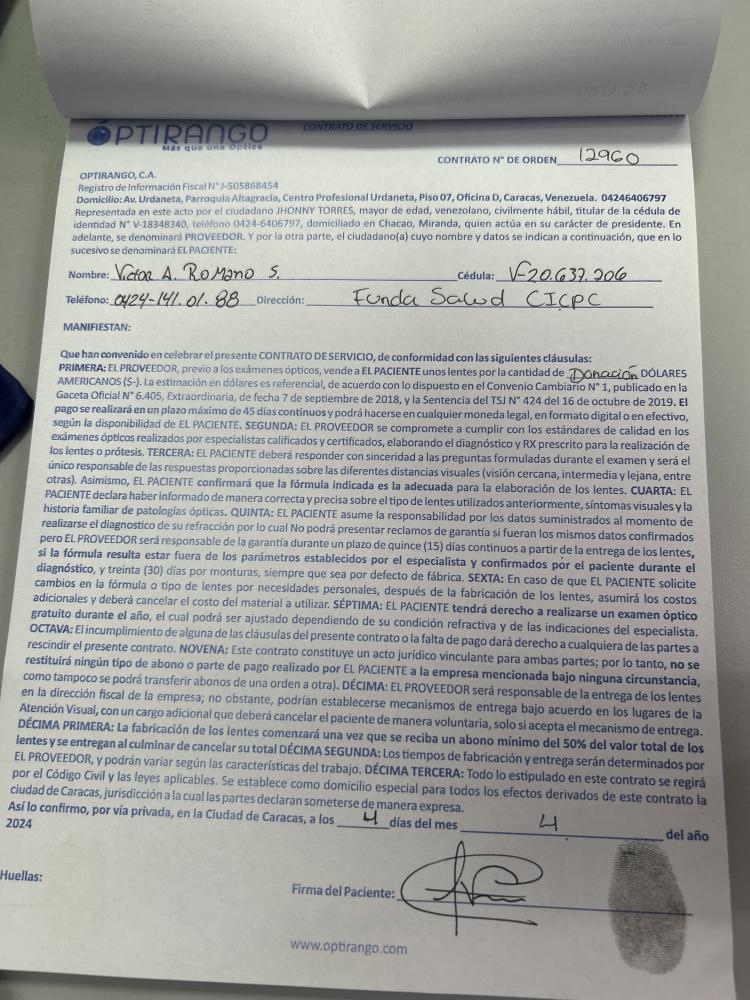 ÓPTIRANGO
Más que una Óptica
CONTRATO DE SERVICIO
CONTRATO N° DE ORDEN 12960
OPTIRANGO, C.A.
Registro de Información Fiscal N° J-505868454
Domicilio: Av. Urdaneta, Parroquia Altagracia, Centro Profesional Urdaneta, Piso 07, Oficina D, Caracas, Venezuela. 04246406797
Representada en este acto por el ciudadano JHONNY TORRES, mayor de edad, venezolano, civilmente hábil, titular de la cédula de
identidad N° V-18348340, teléfono 0424-6406797, domiciliado en Chacao, Miranda, quien actúa en su carácter de presidente. En
adelante, se denominará PROVEEDOR. Y por la otra parte, el ciudadano(a) cuyo nombre y datos se indican a continuación, que en lo
sucesivo se denominará EL PACIENTE:
Nombre: Victor A. Romano S. Cédula: V-20.637.206
Teléfono: 0424-141.01.88 Dirección: Funda Salud CICPC
MANIFIESTAN:
Que han convenido en celebrar el presente CONTRATO DE SERVICIO, de conformidad con las siguientes cláusulas:
PRIMERA: EL PROVEEDOR, previo a los exámenes ópticos, vende a EL PACIENTE unos lentes por la cantidad de Donación DÓLARES
AMERICANOS (S-). La estimación en dólares es referencial, de acuerdo con lo dispuesto en el Convenio Cambiario N° 1, publicado en la
Gaceta Oficial N° 6.405, Extraordinaria, de fecha 7 de septiembre de 2018, y la Sentencia del TSJ N° 424 del 16 de octubre de 2019. El
pago se realizará en un plazo máximo de 45 días continuos y podrá hacerse en cualquier moneda legal, en formato digital o en efectivo,
según la disponibilidad de EL PACIENTE. SEGUNDA: EL PROVEEDOR se compromete a cumplir con los estándares de calidad en los
exámenes ópticos realizados por especialistas calificados y certificados, elaborando el diagnóstico y RX prescrito para la realización de
los lentes o prótesis. TERCERA: EL PACIENTE deberá responder con sinceridad a las preguntas formuladas durante el examen y será el
único responsable de las respuestas proporcionadas sobre las diferentes distancias visuales (visión cercana, intermedia y lejana, entre
otras). Asimismo, EL PACIENTE confirmará que la fórmula indicada es la adecuada para la elaboración de los lentes. CUARTA: EL
PACIENTE declara haber informado de manera correcta y precisa sobre el tipo de lentes utilizados anteriormente, síntomas visuales y la
historia familiar de patologías ópticas. QUINTA: EL PACIENTE asume la responsabilidad por los datos suministrados al momento de
realizarse el diagnostico de su refracción por lo cual No podrá presentar reclamos de garantía si fueran los mismos datos confirmados
pero EL PROVEEDOR será responsable de la garantía durante un plazo de quince (15) días continuos a partir de la entrega de los lentes,
si la fórmula resulta estar fuera de los parámetros establecidos por el especialista y confirmados por el paciente durante el
diagnóstico, y treinta (30) días por monturas, siempre que sea por defecto de fábrica. SEXTA: En caso de que EL PACIENTE solicite
cambios en la fórmula o tipo de lentes por necesidades personales, después de la fabricación de los lentes, asumirá los costos
adicionales y deberá cancelar el costo del material a utilizar. SÉPTIMA: EL PACIENTE tendrá derecho a realizarse un examen óptico
gratuito durante el año, el cual podrá ser ajustado dependiendo de su condición refractiva y de las indicaciones del especialista.
OCTAVA: El incumplimiento de alguna de las cláusulas del presente contrato o la falta de pago dará derecho a cualquiera de las partes a
rescindir el presente contrato. NOVENA: Este contrato constituye un acto jurídico vinculante para ambas partes; por lo tanto, no se
restituirá ningún tipo de abono o parte de pago realizado por EL PACIENTE a la empresa mencionada bajo ninguna circunstancia,
como tampoco se podrá transferir abonos de una orden a otra). DÉCIMA: EL PROVEEDOR será responsable de la entrega de los lentes
en la dirección fiscal de la empresa; no obstante, podrían establecerse mecanismos de entrega bajo acuerdo en los lugares de la
Atención Visual, con un cargo adicional que deberá cancelar el paciente de manera voluntaria, solo si acepta el mecanismo de entrega.
DÉCIMA PRIMERA: La fabricación de los lentes comenzará una vez que se reciba un abono mínimo del 50% del valor total de los
lentes y se entregan al culminar de cancelar su total DÉCIMA SEGUNDA: Los tiempos de fabricación y entrega serán determinados por
EL PROVEEDOR, y podrán variar según las características del trabajo. DÉCIMA TERCERA: Todo lo estipulado en este contrato se regirá
por el Código Civil y las leyes aplicables. Se establece como domicilio especial para todos los efectos derivados de este contrato la
ciudad de Caracas, jurisdicción a la cual las partes declaran someterse de manera expresa.
Así lo confirmo, por vía privada, en la Ciudad de Caracas, a los 4 días del mes 4 del año
2024
Huellas:
Firma del Paciente:
www.optirango.com